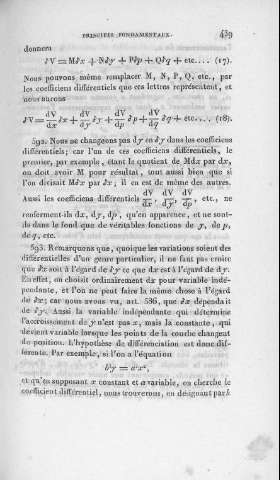 PRINCIPES FONDAMENTAUX. 439
donnent
δV = Mδx + Nδy + Pδp + Qδq + etc.... (17).
Nous pouvons même remplacer M, N, P, Q, etc., par
les coefficiens différentiels que ces lettres représentent, et
nous aurons
δV = dV/dx δx + dV/dy δy + dV/dp δp + dV/dq δq + etc.... (18).
592. Nous ne changeons pas dy en δy dans les coefficiens
différentiels; car l'un de ces coefficiens différentiels, le
premier, par exemple, étant le quotient de Mdx par dx,
on doit avoir M pour résultat, tout aussi bien que si
l'on divisait Mδx par δx; il en est de même des autres.
Aussi les coefficiens différentiels dV/dx, dV/dy, dV/dp, etc., ne
renferment-ils dx, dy, dp, qu'en apparence, et ne sont-
ils dans le fond que de véritables fonctions de y, de p,
de q, etc.
593. Remarquons que, quoique les variations soient des
différentielles d'un genre particulier, il ne faut pas croire
que δx soit à l'égard de δy ce que dx est à l'égard de dy.
En effet, on choisit ordinairement dx pour variable indé-
pendante, et l'on ne peut faire la même chose à l'égard
de δx; car nous avons vu, art. 586, que δx dépendait
de δy. Aussi la variable indépendante qui détermine
l'accroissement de y n'est pas x, mais la constante, qui
devient variable lorsque les points de la courbe changent
de position. L'hypothèse de différenciation est donc dif-
férente. Par exemple, si l'on a l'équation
et qu'en supposant x constant et a variable, on cherche le
coefficient différentiel, nous trouverons, en désignant par k